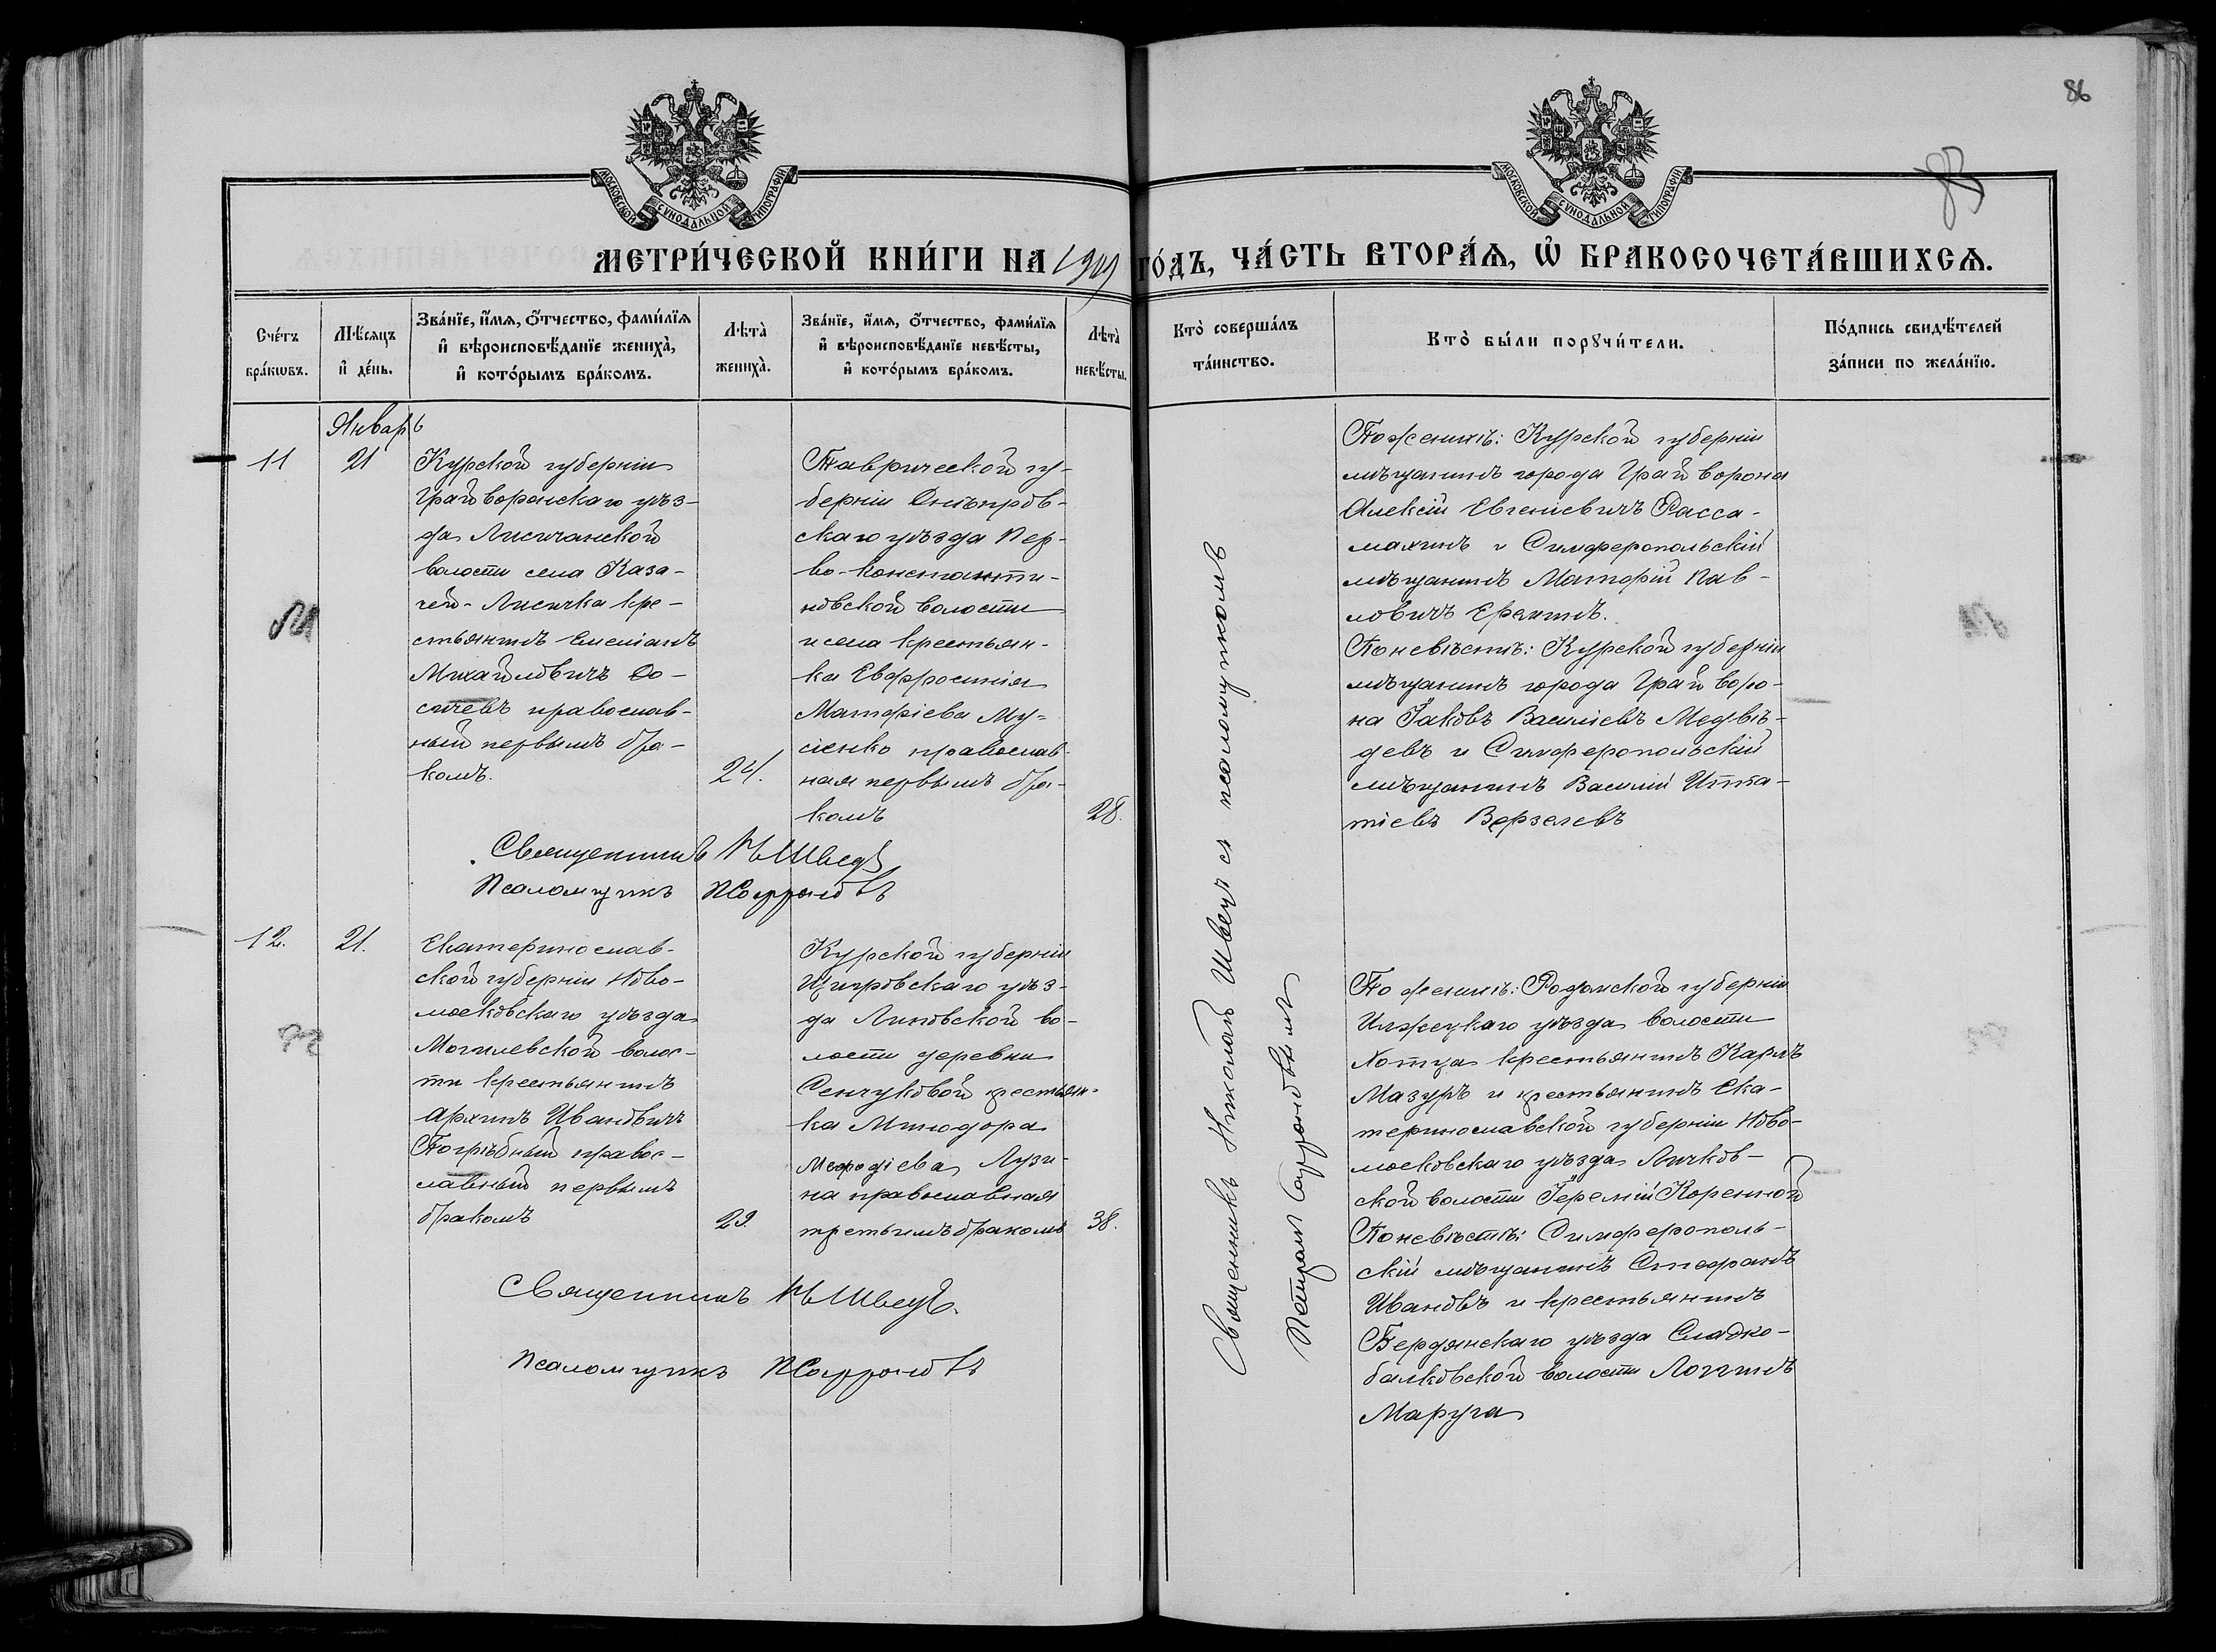 86
83
МОСКОВСКОЙ СѴНОДАЛЬНОЙ ТИПОГРАФІИ
МОСКОВСКОЙ СѴНОДАЛЬНОЙ ТИПОГРАФІИ
МЕТРИ́ЧЕСКОЙ КНИ́ГИ НА 1909 ГО́ДЪ, ЧА́СТЬ ВТОРА́Ѧ, Ѡ҆ БРАКОСОЧЕТА́ВШИХСѦ.
Сче́тъ
бра́кωвъ.
Мѣ́сяцъ
и҆ де́нь.
Зва́нїе, и҆́мѧ, ѻ҆́тчество, фами́лїѧ
и҆ вѣроисповѣ́данїе жениха̀,
и҆ кото́рымъ бра́комъ.
Лѣта̀
жениха̀.
Зва́нїе, и҆́мѧ, ѻ҆́тчество, фами́лїѧ
и҆ вѣроисповѣ́данїе невѣ́сты,
и҆ кото́рымъ бра́комъ.
Лѣта̀
невѣ́сты.
Кто̀ соверша́лъ
та́инство.
Кто̀ бы́ли порꙋчи́тели.
По́дпись свидѣ́телей
за́писи по жела́нїю.
Январь
11
21
Курской губерніи
Грайворонскаго уѣз-
да Лисичанской
волости села Каза-
чей-Лисичка кре-
стьянинъ Емеліанъ
Михайловичъ Со-
сичевъ православ-
ный первымъ бра-
комъ.
24.
Таврической гу-
берніи Днѣпров-
скаго уѣзда Пер-
во-Константи-
новской волости
и села крестьян-
ка Евфросинія
Матфіева Му-
сіенко православ-
ная первымъ бра-
комъ
28.
Священникъ Н Швецъ
Псаломщикъ П Сафроновъ
Священникъ Николай Швецъ съ псаломщикомъ
Петромъ Сафроновымъ
По женихѣ: Курской губерніи
мѣщанинъ города Грайворона
Алексій Евгеніевичъ Расса-
махинъ и Симферопольскій
мѣщанинъ Матфій Пав-
ловичъ Ерахинъ.
По невѣстѣ: Курской губерніи
мѣщанинъ города Грайворо-
на Іаковъ Василіевъ Медвѣ-
девъ и Симферопольскій
мѣщанинъ Василій Игна-
тіевъ Верзелевъ
12.
21.
Екатеринослав-
ской губерніи Ново-
московскаго уѣзда
Могилевской волос-
ти крестьянинъ
Архипъ Ивановичъ
Погрѣбный правос-
лавный первымъ
бракомъ
29
Курской губерніи
Щигровскаго уѣз-
да Липовской во-
лости деревни
Сенчуковой крестьян-
ка Минодора
Мефодіева Лузи-
на православная
третьимъ бракомъ
38.
Священникъ Н Швецъ.
Псаломщикъ П Сафроновъ
По женихѣ: Радомской губерніи
Илжецкаго уѣзда волости
Хотца крестьянинъ Карлъ
Мазуръ и крестьянинъ Ека-
теринославской губерніи Ново-
московскаго уѣзда Личков-
ской волости Іеремій Коренной
По невѣстѣ: Симферополь-
скій мѣщанинъ Стефанъ
Ивановъ и крестьянинъ
Бердянскаго уѣзда Сладко-
балковской волости Логгинъ
Маруга